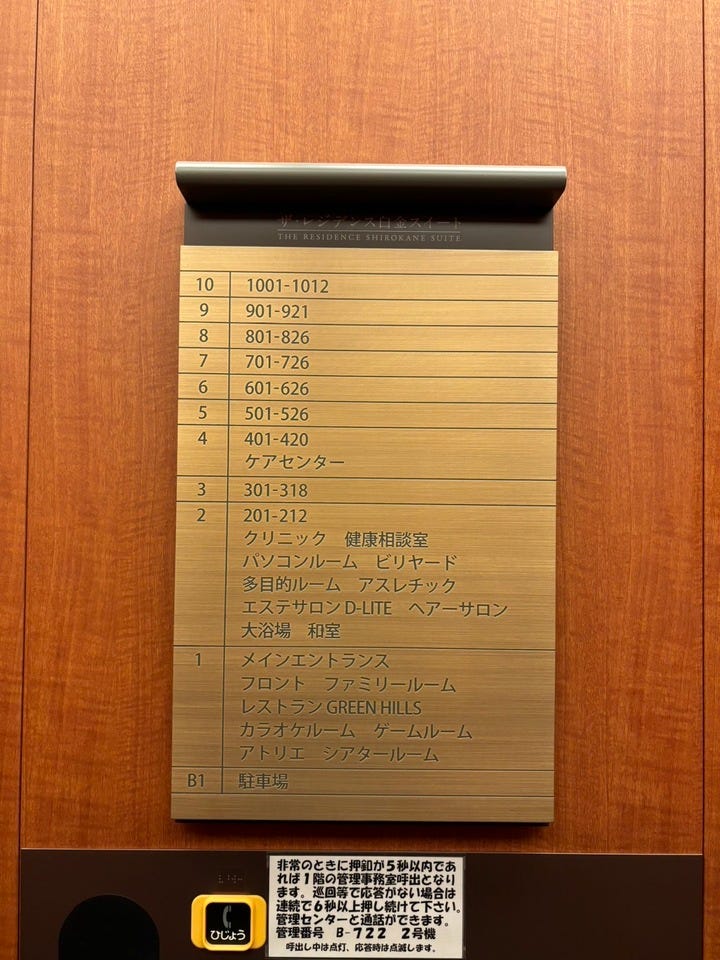 ザ・レジデンス白金スイート
THE RESIDENCE SHIROKANE SUITE
10 1001-1012
9 901-921
8 801-826
7 701-726
6 601-626
5 501-526
4 401-420
ケアセンター
3 301-318
2 201-212
クリニック 健康相談室
パソコンルーム ビリヤード
多目的ルーム アスレチック
エステサロン D-LITE ヘアーサロン
大浴場 和室
1 メインエントランス
フロント ファミリールーム
レストラン GREEN HILLS
カラオケルーム ゲームルーム
アトリエ シアタールーム
B1 駐車場
非常のときに押釦が5秒以内であ
れば1階の管理事務室呼出となり
ます。巡回等で応答がない場合は
連続で6秒以上押し続けて下さい。
管理センターと通話ができます。
管理番号 B-722 2号機
呼出し中は点灯、応答時は点滅します。
ひじょう